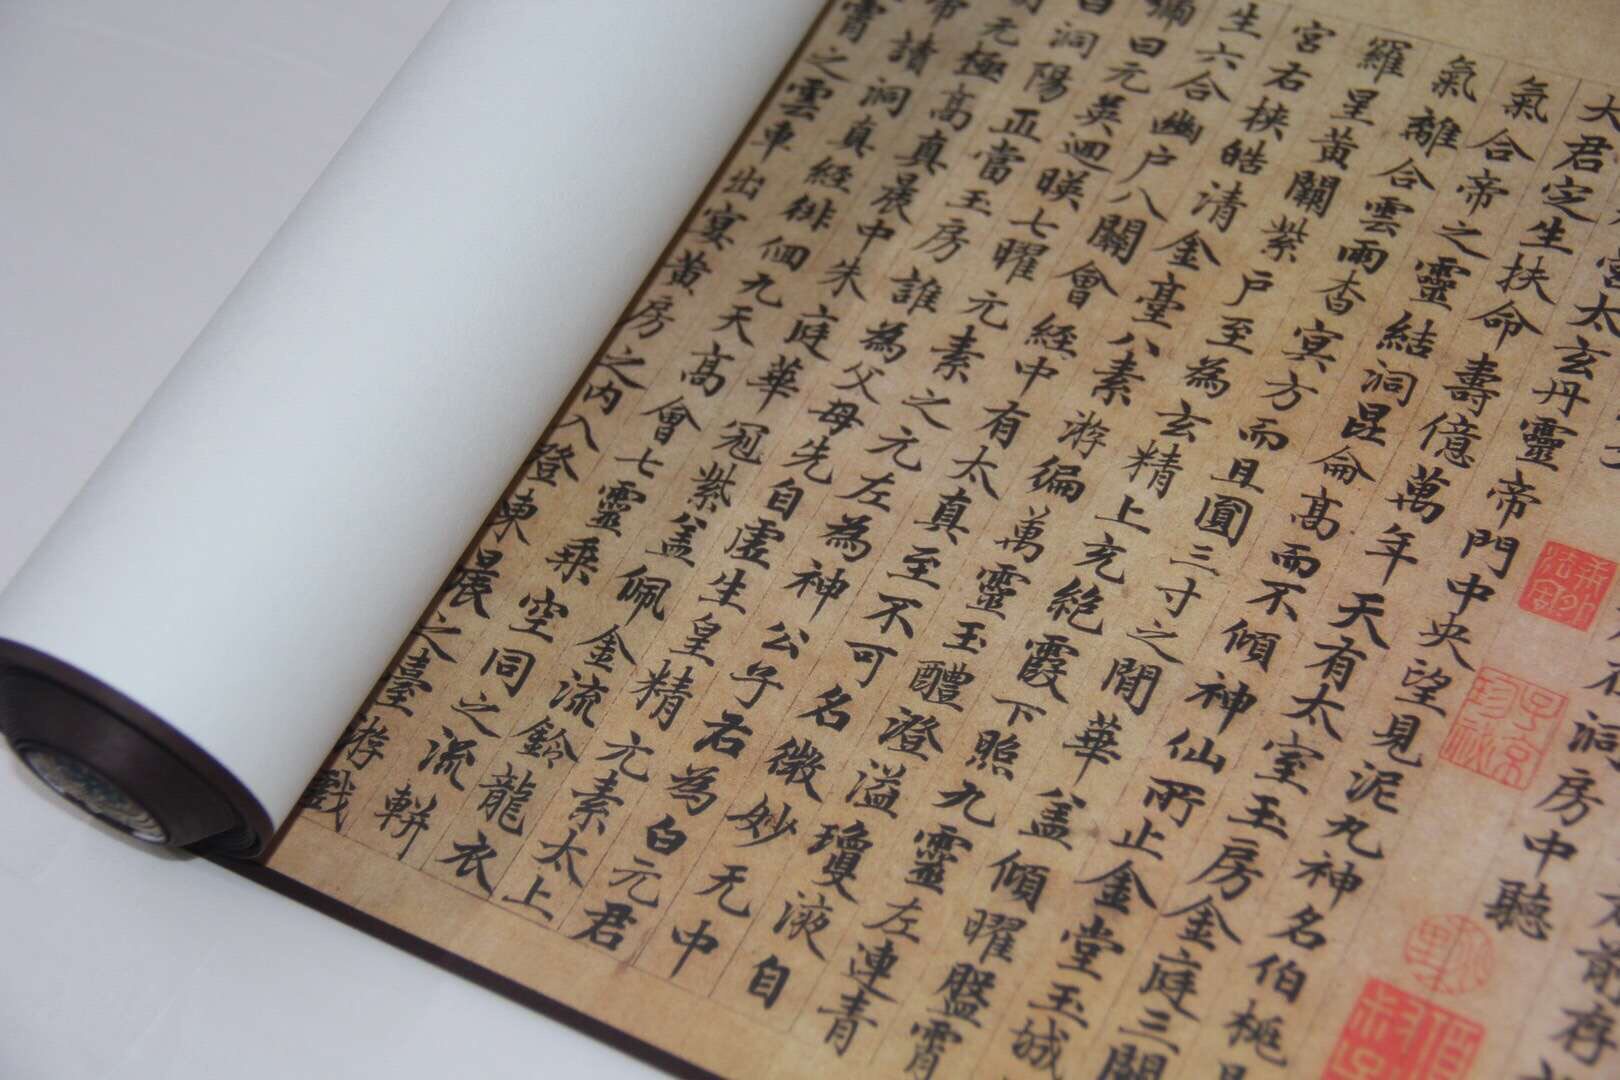 在洞房中聽
當太玄丹靈帝門中央望見泥丸神名伯桃
大君定生扶命壽億萬年天有太室玉房金庭三關
氣合帝之靈結洞昆侖高而不傾神仙所止金堂玉城
氣離合雲雨杳冥方而且圓三寸之間華蓋傾曜盤霄
羅星黃闕紫户至為玄精上充絶霞下照九靈左連青
宮右挾皓清金臺八素游編萬靈玉醴澄溢瓊液自
生六合幽户八關會經中有太真至不可名微妙无中
嘯曰元英迴暎七曜元素之元左為神公子右為白元君
白洞陽正當玉房誰為父母先自虛生皇精元素太上
元極高真晨中朱庭華冠紫蓋佩金流鈴龍衣
帝讀洞真經徘徊九天高會七靈乘空同之流軿
霄之雲車出宴黃房之内入登東晨之臺游戲